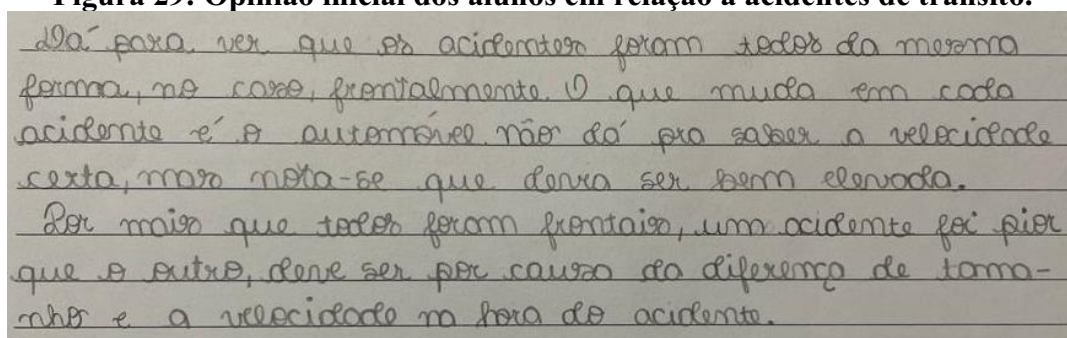 Figura 29: Opinião inicial dos alunos em relação a acidentes de trânsito.
Dá para ver que os acidentes foram todos da mesma
forma, no caso, frontalmente. O que muda em cada
acidente é o automóvel não dá pra saber a velocidade
certa, mas nota-se que devia ser bem elevada.
Por mais que todos foram frontais, um acidente foi pior
que o outro, deve ser por causa da diferença de tama-
nho e a velocidade na hora do acidente.